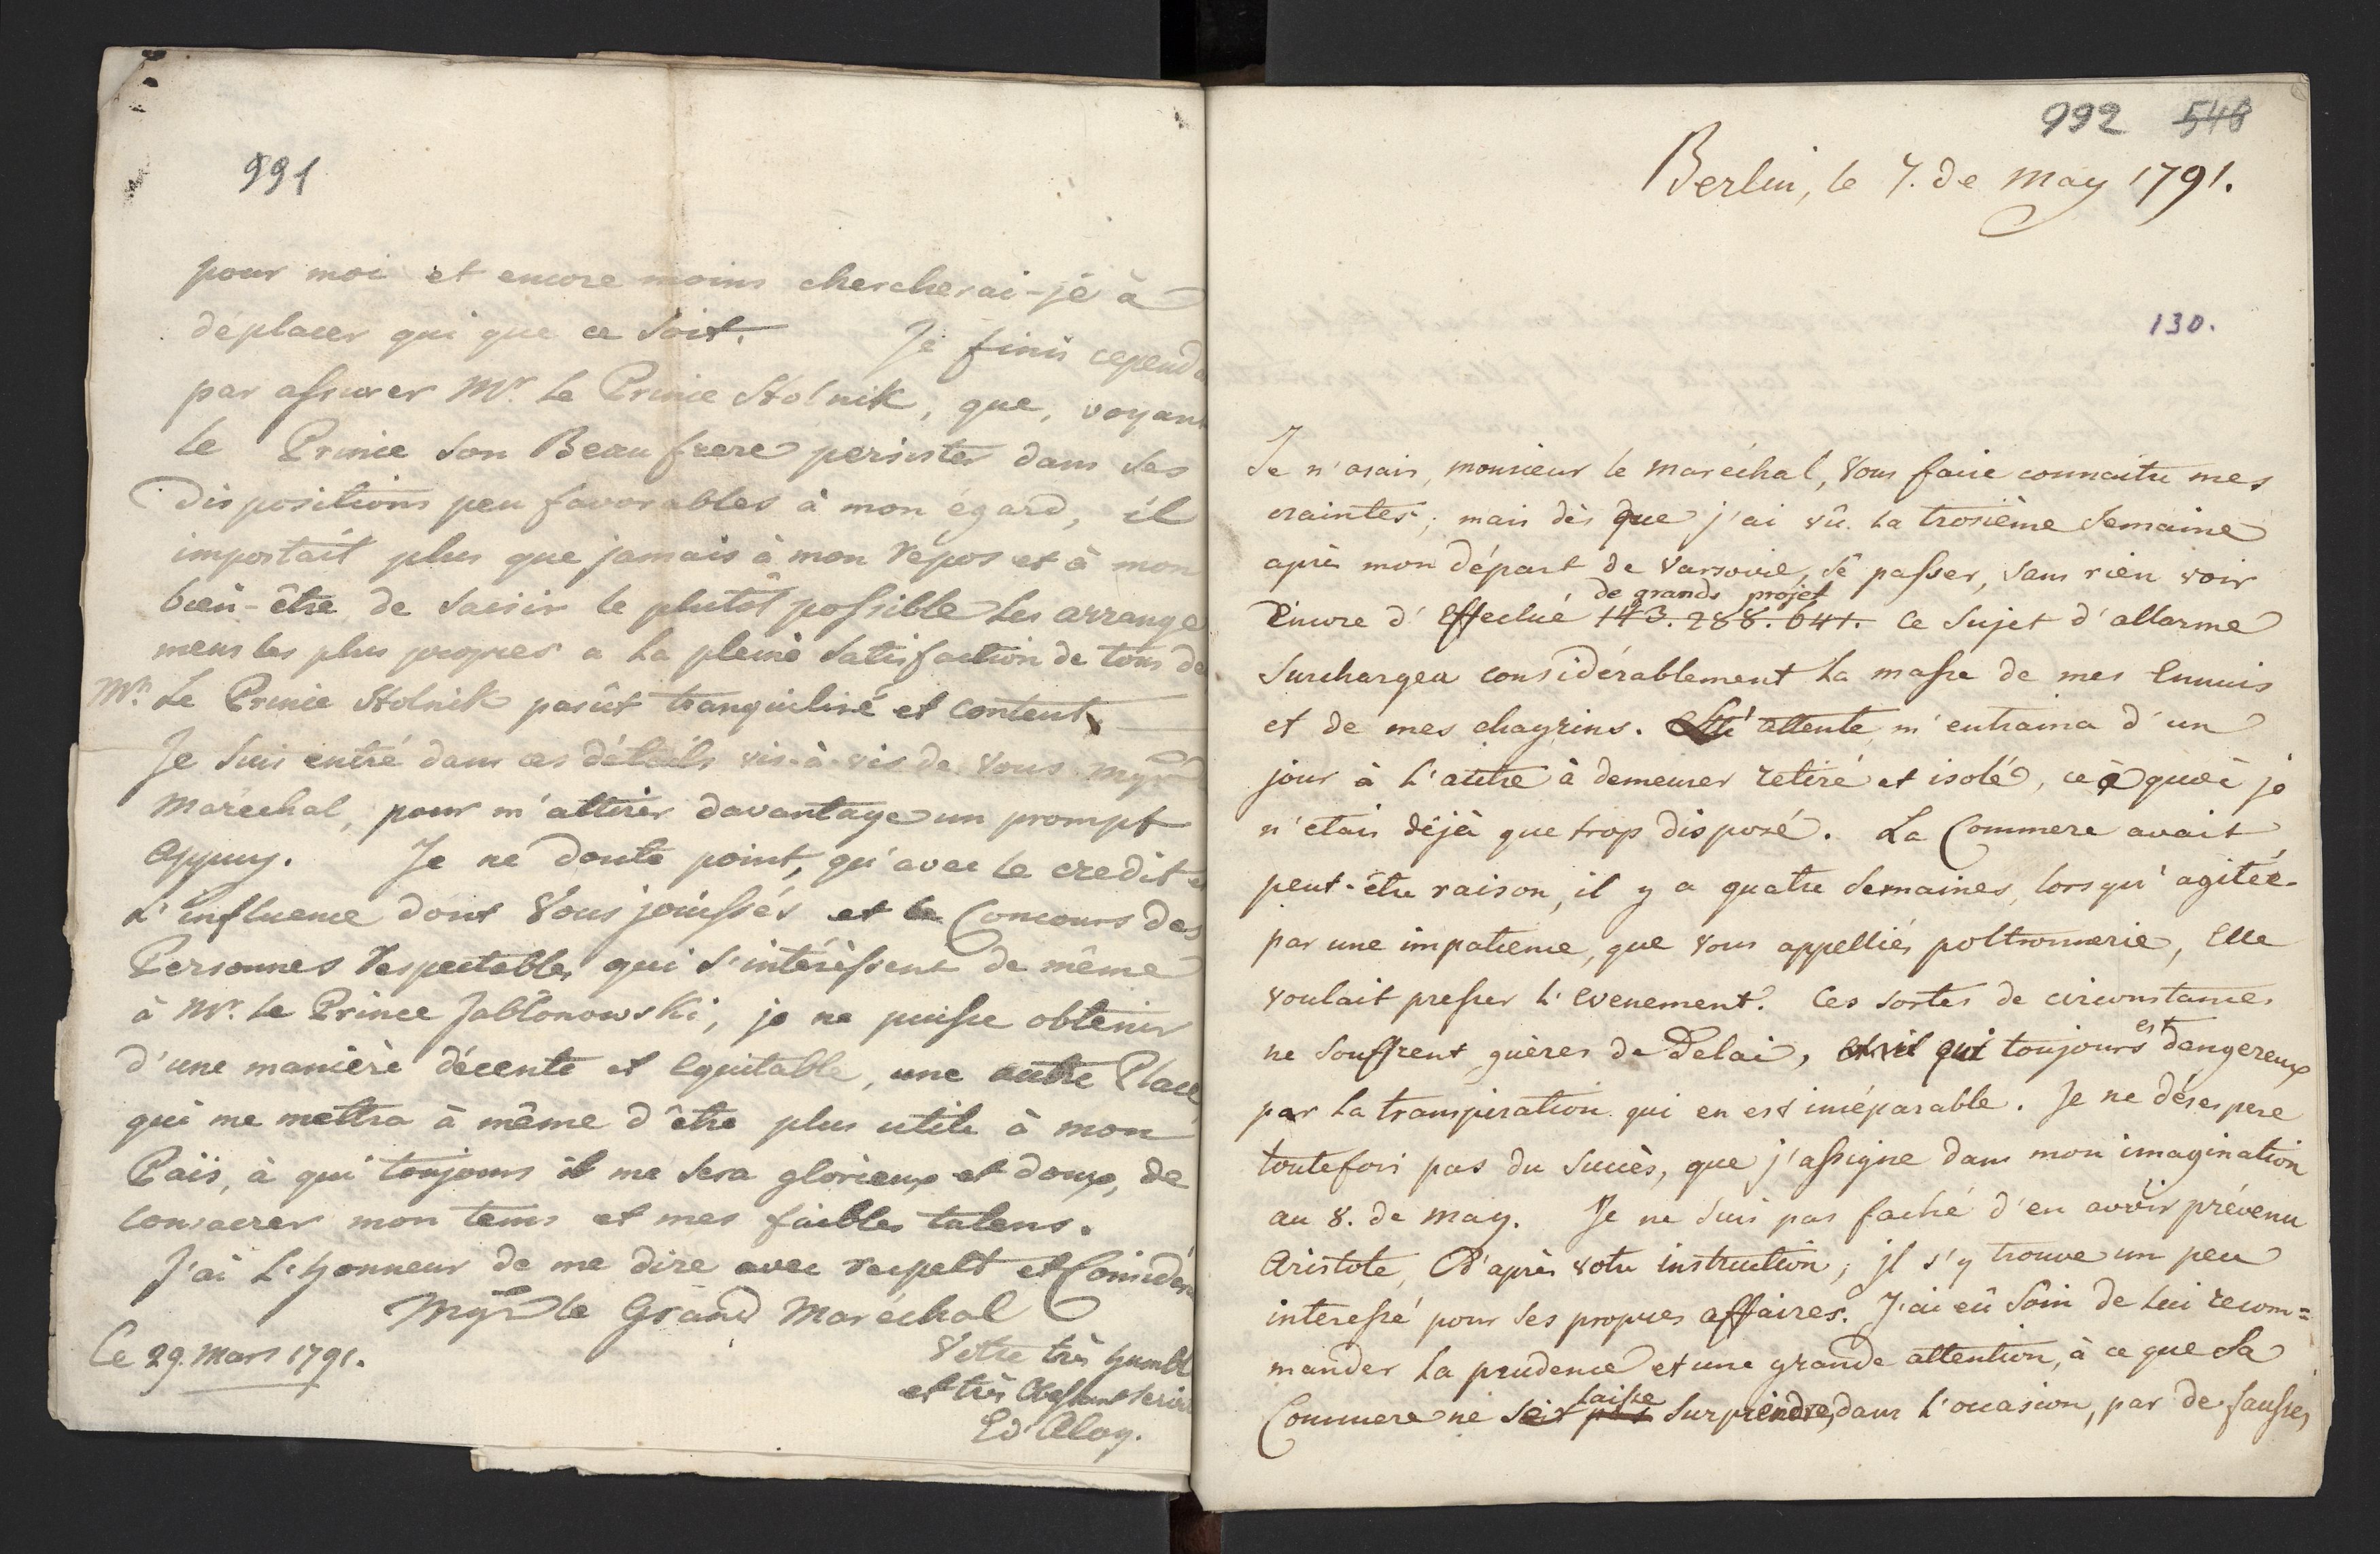 991
pour moi et encore moins chercherai-je à
déplacer qui que ce soit. Je finis cepend
par assurer Mr. le Prince Stolnik, que, voyant
le Prince son Beau frere persister dans ses
Dispositions peu favorables à mon égard, il
importait plus que jamais à mon repos et à mon
bien-être de saisir le plutôt possible les arrange
mens les plus propres a la pleine satisfaction de tous de
Mr. Le Prince Stolnik parût tranquilisé et content.
Je suis entré dans ces détails vis-à-vis de vous
Maréchal, pour m'attirer davantage un prompt
appuy. Je ne doute point, qu'avec le credit et
L'influence dont Vous jouissés et le Concours des
Personnes respectables qui s'intérèssent de même
à Mr. le Prince Jablonowski, je ne puisse obtenir
d'une manière décente et equitable, une autre Place
qui me mettra à même d'être plus utile à mon
Païs, à qui toujours il me sera glorieux et doux, de
consacrer mon tems et mes faibles talens.
J'ai L'honneur de me dire avec respect et Considér
le Grand Maréchal
Ce 29. Mars 1791.
Vôtre très humbl
et très
Ed Aloy.
992 548
Berlin, le 7. de May 1791.
130.
Je n'osais, monsieur le maréchal, vous faire connaitre mes
craintes; mais dès que j'ai vû la troisième semaine
après mon départ de Varsovie, se passer, sans rien voir
de grands projet
Encore d'effectué 143. 288. 641. Ce sujet d'allarme
surchargea considérablement la masse de mes Ennuis
et de mes chagrins. attente m'entraina d'un
jour à l'autre à demeurer retiré et isolé, ce à quoi je
n'etais déjà que trop disposé. La Commere avait
peut-être raison, il y a quatre semaines, lorsqu'agitée
par une impatience, que vous appelliés poltronnerie, Elle
voulait presser l'evenement. Ces sortes de circonstances
ne souffrent guères de Delai, qui toujours est dangereux
par la transpiration qui en est inséparable. Je ne désespere
toutefois pas du succès, que j'assigne dans mon imagination
au 8. de may. Je ne suis pas faché d'en avoir prévenu
Aristote, D'après votre instruction; il s'y trouve un peu
interessé pour ses propres affaires. J'ai eû soin de lui recom=
mander la prudence et une grande attention, à ce que la
laisse
Commere ne soit pas surprendre, dans l'occasion, par de fausses